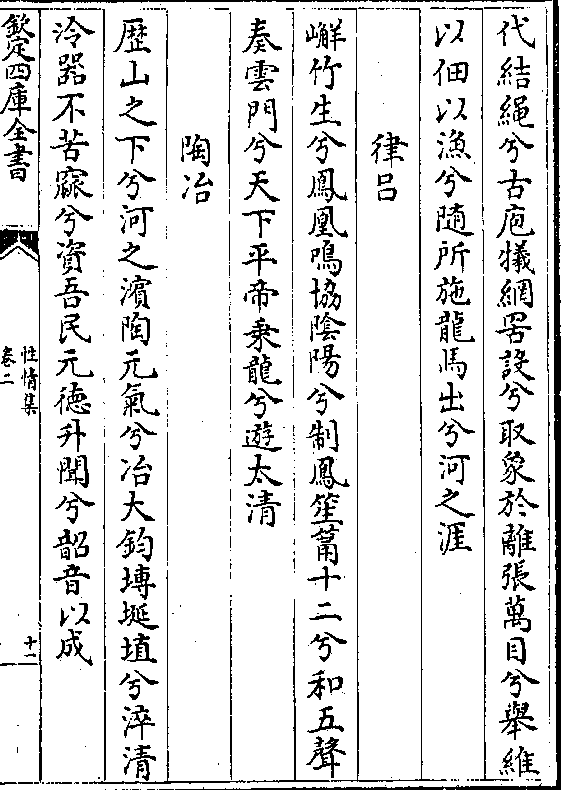 代結繩兮古庖犧網罟設兮取象於離張萬目兮舉維
以佃以漁兮隨所施龍馬出兮河之涯
律吕
嶰竹生兮鳳凰鳴協陰陽兮制鳳笙筩十二兮和五聲
奏雲門兮天下平帝乗龍兮遊太清
陶冶
歴山之下兮河之濱陶元氣兮冶大鈞摶埏埴兮淬清
泠器不苦窳兮資吾民元徳升聞兮韶音以成
欽定四庫全書
性情集
卷二
十一